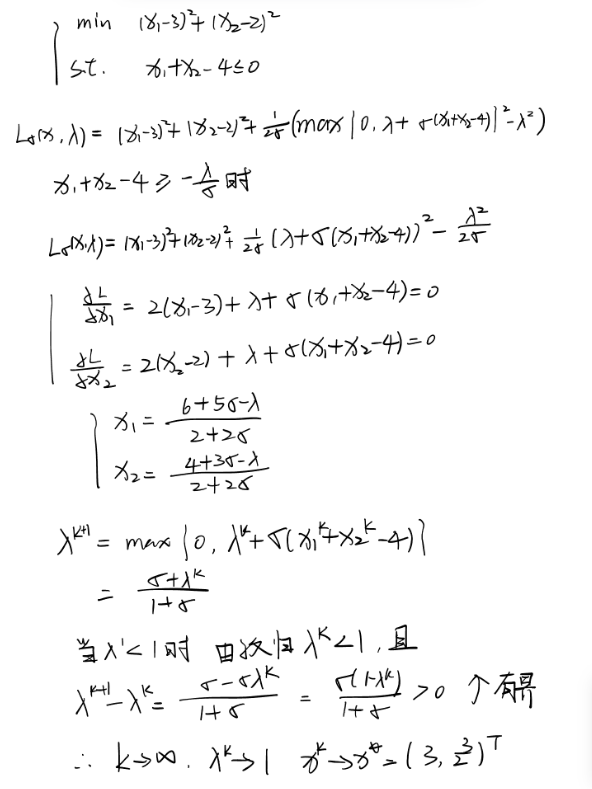 min (x₁-3)²+(x₂-2)²
s.t. x₁+x₂-4≤0
Lσ(x,λ)= (x₁-3)²+(x₂-2)²+ 1/2σ (max{0, λ+σ(x₁+x₂-4)}²-λ²)
x₁+x₂-4 ≥ -λ/σ 时
Lσ(x,λ)= (x₁-3)²+(x₂-2)²+ 1/2σ (λ+σ(x₁+x₂-4))² - λ²/2σ
∂L/∂x₁ = 2(x₁-3)+λ+σ(x₁+x₂-4)=0
∂L/∂x₂ = 2(x₂-2)+λ+σ(x₁+x₂-4)=0
x₁= (6+5σ-λ)/(2+2σ)
x₂= (4+3σ-λ)/(2+2σ)
λᵏ⁺¹= max{0, λᵏ+σ(x₁ᵏ+x₂ᵏ-4)}
= (σ+λᵏ)/(1+σ)
当λ¹<1时 由 归 λᵏ<1, 且
λᵏ⁺¹-λᵏ= (σ-σλᵏ)/(1+σ) = σ(1-λᵏ)/(1+σ) >0 个有界
∴ k→∞. λᵏ→1 xᵏ→x*=(3, 3/2)ᵀ